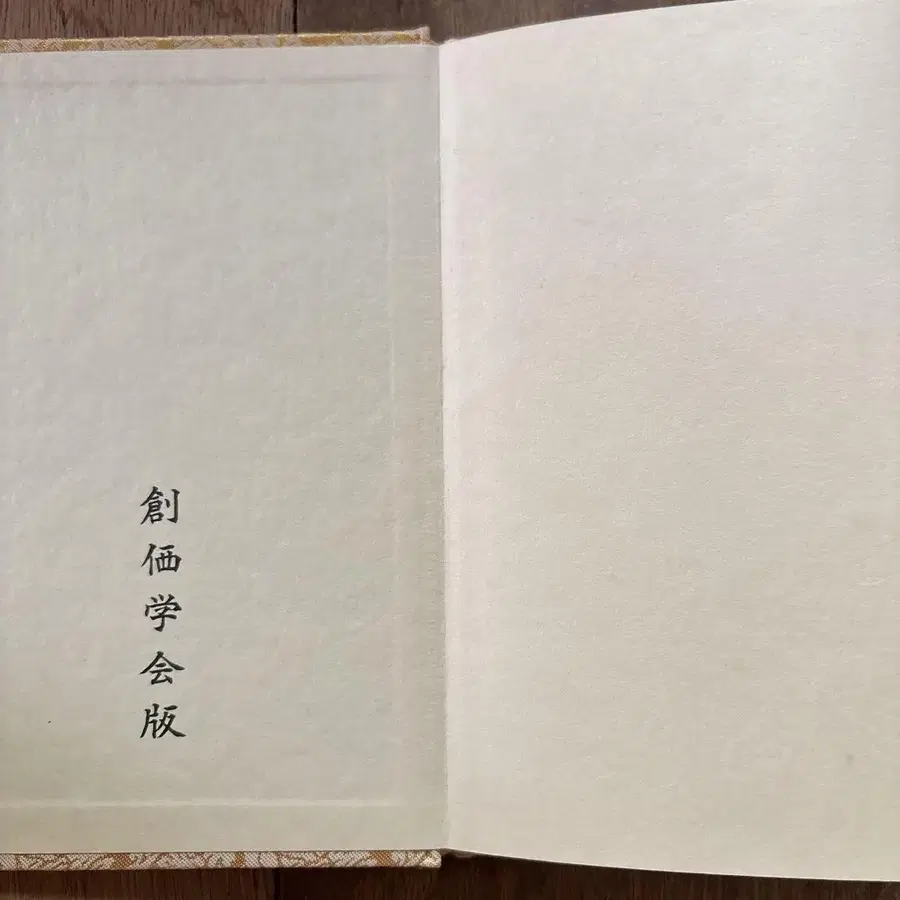 創価学会版